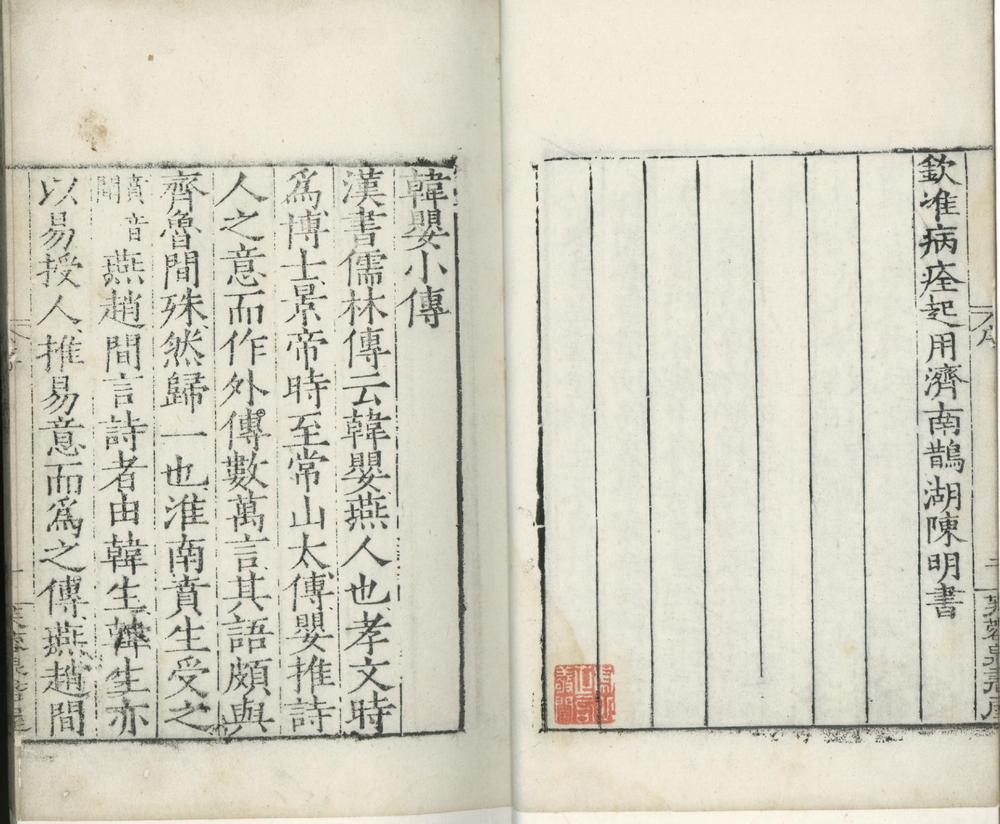 欽准病痊起用濟南鵲湖陳明書
韓嬰小傳
漢書儒林傳云韓嬰燕人也孝文時
爲博士景帝時至常山太傅嬰推詩
人之意而作外傳數萬言其語頗與
齊魯間殊然歸一也淮南賁生受之
賁音
燕趙間言詩者由韓生韓生亦
以易授人推易意而爲之傳燕趙間